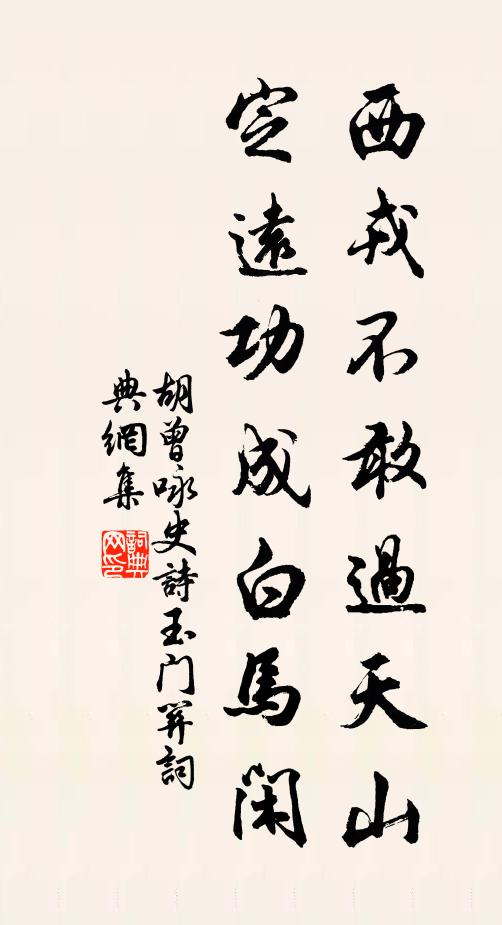 西戎不敢過天山
定遠功成白馬閑
胡曾咏史詩玉门關詞
典網集
詞典网印